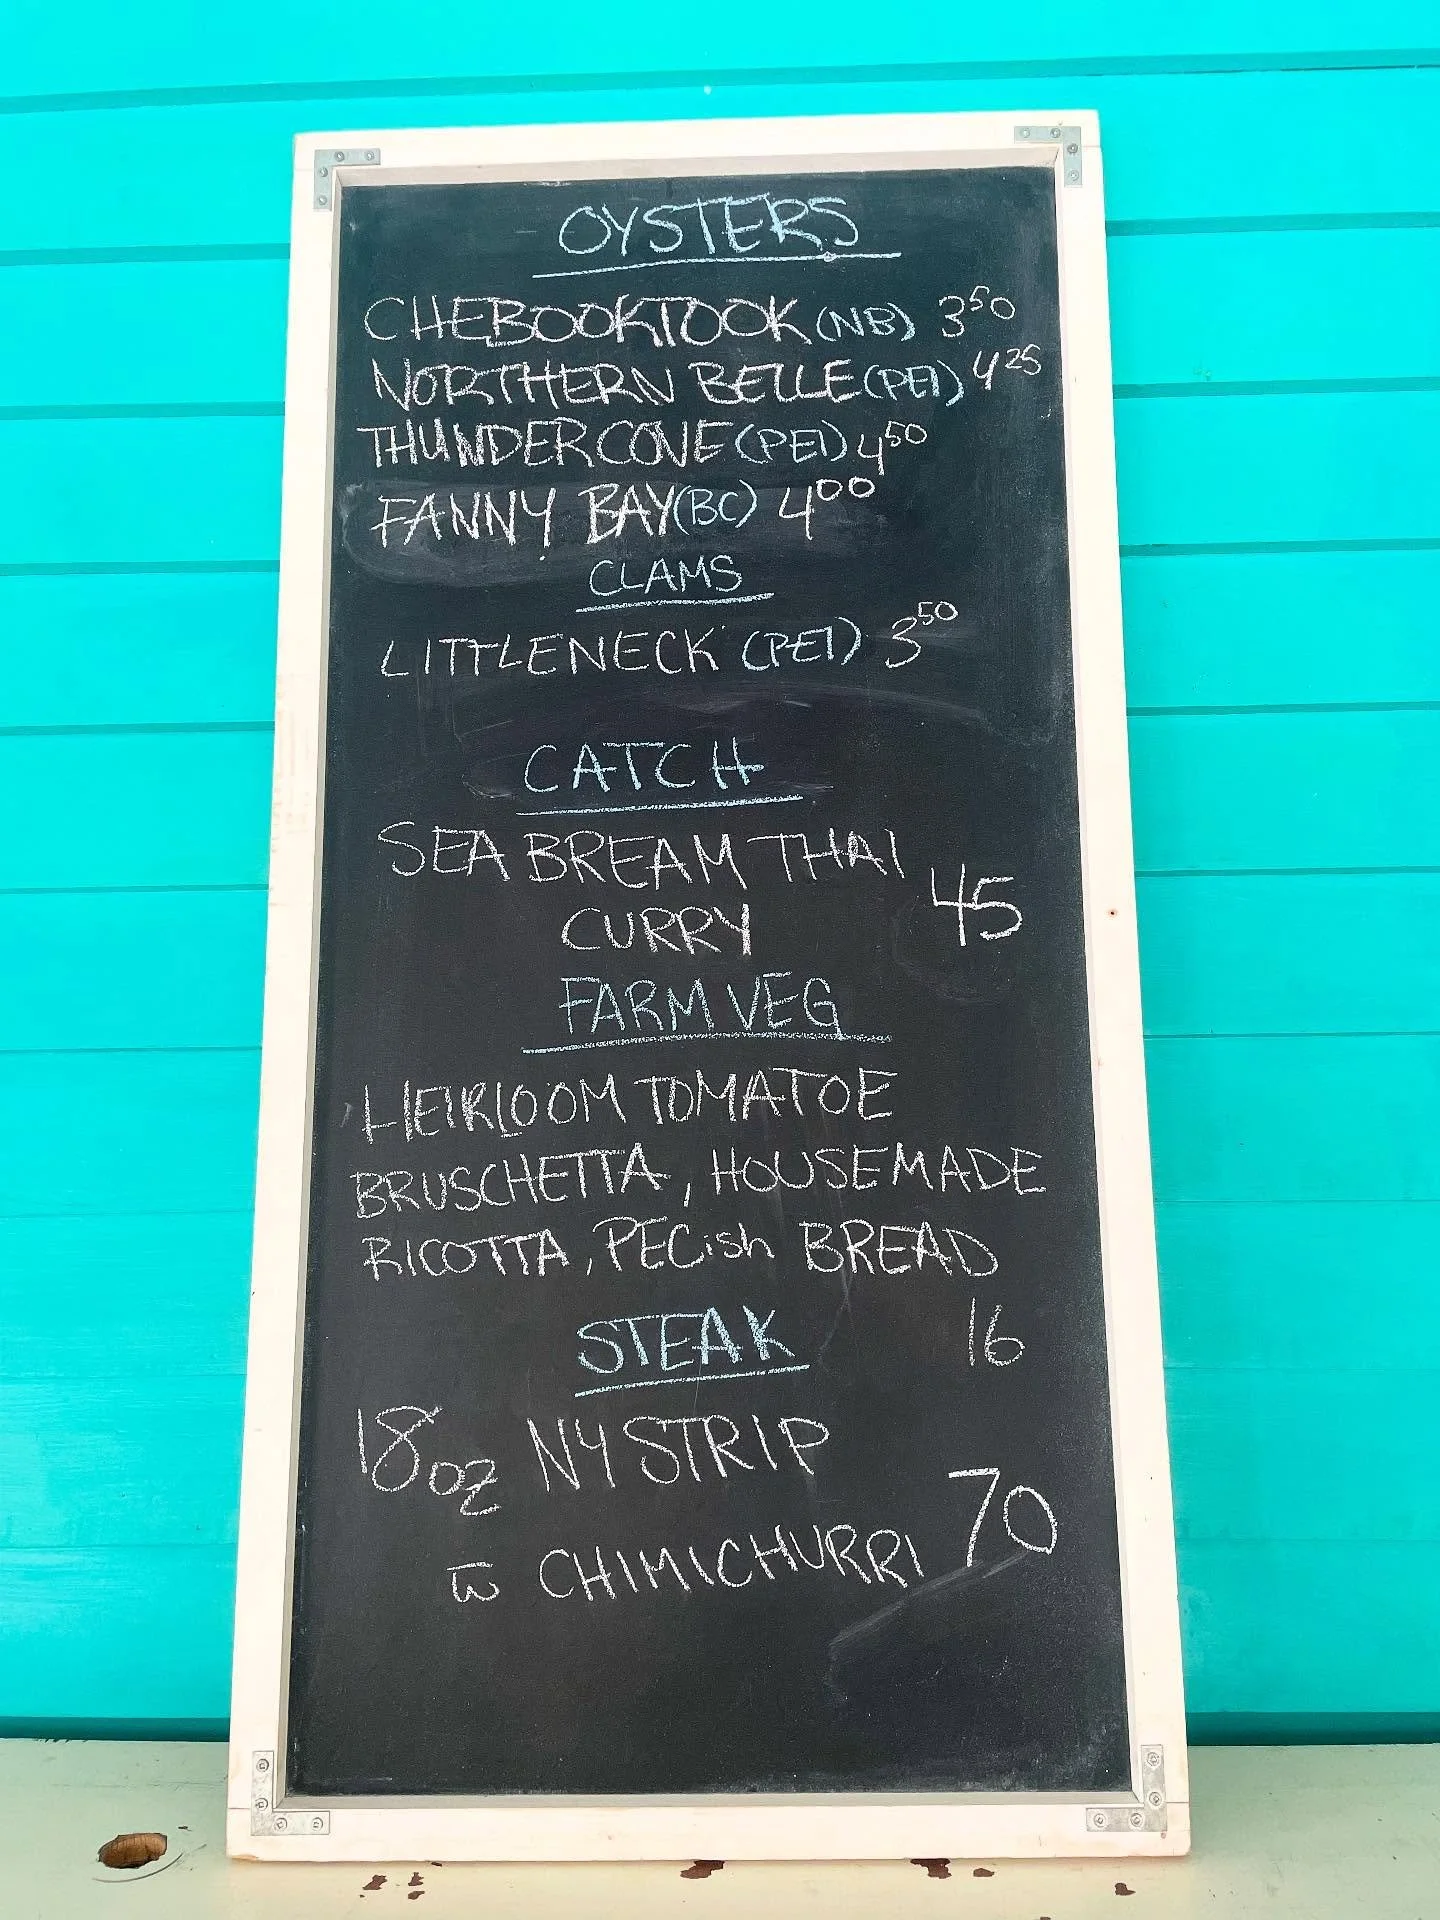 OYSTERS
CHEBOOKTOOK (NB) 3⁵⁰
NORTHERN BELLE (PEI) 4²⁵
THUNDERCOVE (PEI) 4⁵⁰
FANNY BAY (BC) 4⁰⁰
CLAMS
LITTLENECK (PEI) 3⁵⁰
CATCH
SEA BREAM THAI
CURRY 45
FARM VEG
HEIRLOOM TOMATOE
BRUSCHETTA, HOUSEMADE
RICOTTA, PECish BREAD
16
STEAK
18oz NY STRIP
w̅ CHIMICHURRI 70